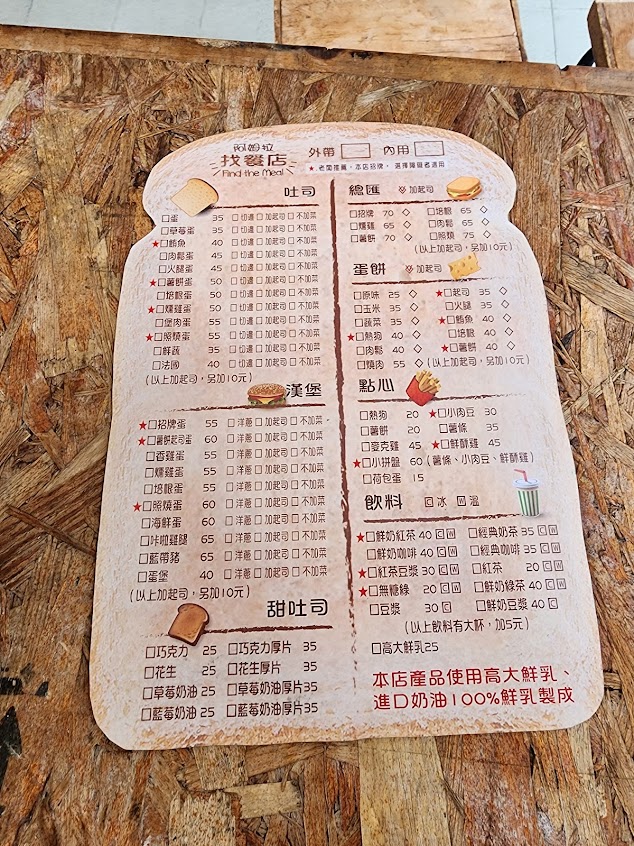 阿姆拉
找餐店
Find the Meal
外帶□ 內用□
★老闆推薦，本店招牌， 選擇障礙者適用
吐司
□蛋 35 □切邊□加起司□不加菜
□草莓蛋 35 □切邊□加起司□不加菜
★□鮪魚 40 □切邊□加起司□不加菜
□肉鬆蛋 45 □切邊□加起司□不加菜
□火腿蛋 45 □切邊□加起司□不加菜
★□薯餅蛋 50 □切邊□加起司□不加菜
□培根蛋 50 □切邊□加起司□不加菜
★□燻雞蛋 50 □切邊□加起司□不加菜
□堡肉蛋 55 □切邊□加起司□不加菜
★□照燒蛋 55 □切邊□加起司□不加菜
□鮮蔬 35 □切邊□加起司□不加菜
□法國 40 □切邊□加起司□不加菜
(以上加起司，另加10元)
漢堡
★□招牌蛋 55 □洋蔥□加起司□不加菜
★□薯餅起司蛋 60 □洋蔥□加起司□不加菜
□香雞蛋 55 □洋蔥□加起司□不加菜
□燻雞蛋 55 □洋蔥□加起司□不加菜
□培根蛋 55 □洋蔥□加起司□不加菜
★□照燒蛋 60 □洋蔥□加起司□不加菜
□海鮮蛋 60 □洋蔥□加起司□不加菜
□咔啦雞腿 65 □洋蔥□加起司□不加菜
□藍帶豬 65 □洋蔥□加起司□不加菜
□蛋堡 40 □洋蔥□加起司□不加菜
(以上加起司，另加10元)
甜吐司
□巧克力 25 □巧克力厚片 35
□花生 25 □花生厚片 35
□草莓奶油 25 □草莓奶油厚片35
□藍莓奶油 25 □藍莓奶油厚片35
總匯 加起司
□招牌 70 ◇ □培根 65 ◇
□燻雞 65 ◇ □肉鬆 65 ◇
□薯餅 70 ◇ □照燒 75 ◇
(以上加起司，另加10元)
蛋餅 加起司
□原味 25 ◇ ★□起司 35 ◇
□玉米 35 ◇ □火腿 35 ◇
□蔬菜 35 ◇ ★□鮪魚 40 ◇
★□熱狗 40 ◇ □培根 40 ◇
□肉鬆 40 ◇ ★□薯餅 40 ◇
□燒肉 55 ◇ (以上加起司，另加10元)
點心
□熱狗 20 ★□小肉豆 30
□薯餅 20 □薯條 35
□麥克雞 45 ★□鮮酥雞 45
★□小拼盤 60 (薯條、小肉豆、鮮酥雞)
□荷包蛋 15
飲料 C冰 W溫
★□鮮奶紅茶 40 C W □經典奶茶 35 C W
□鮮奶咖啡 40 C W □經典咖啡 35 C W
★□紅茶豆漿 30 C W □紅茶 20 C W
★□無糖綠 20 C W □鮮奶綠茶 40 C W
□豆漿 30 C □鮮奶豆漿 40 C
(以上飲料有大杯，加5元)
□高大鮮乳25
本店產品使用高大鮮乳、
進口奶油100%鮮乳製成